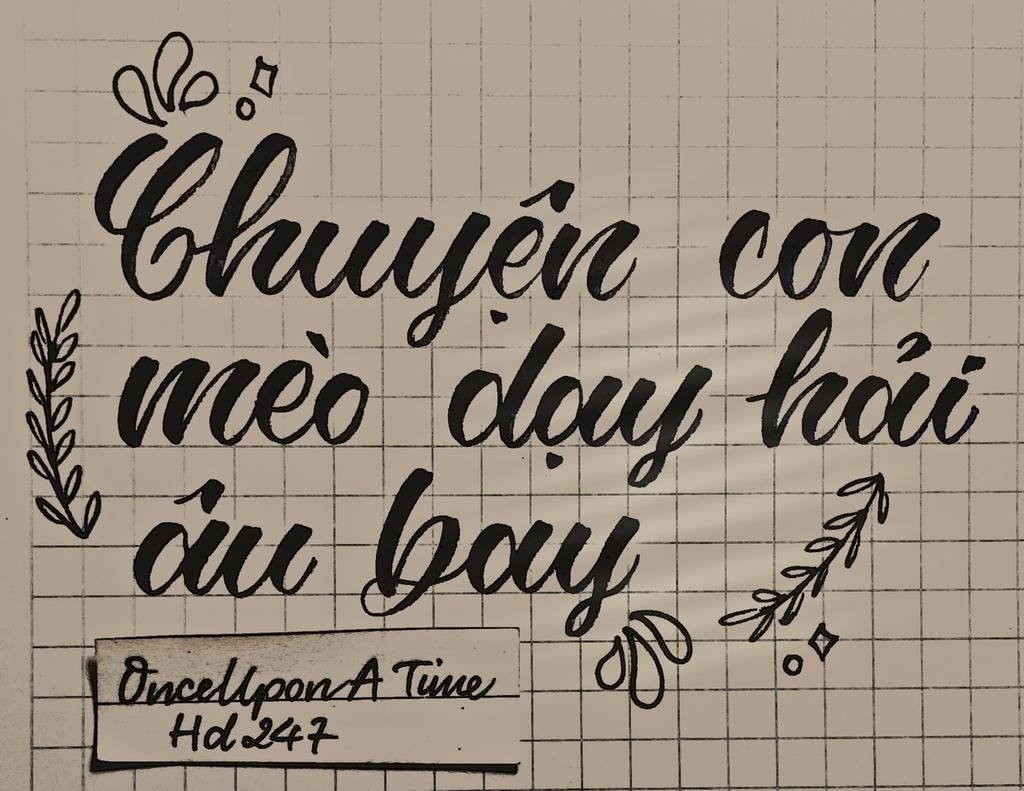 Chuyện con
mèo dạy hải
âu bay
OnceUpon A Time
Hd 247